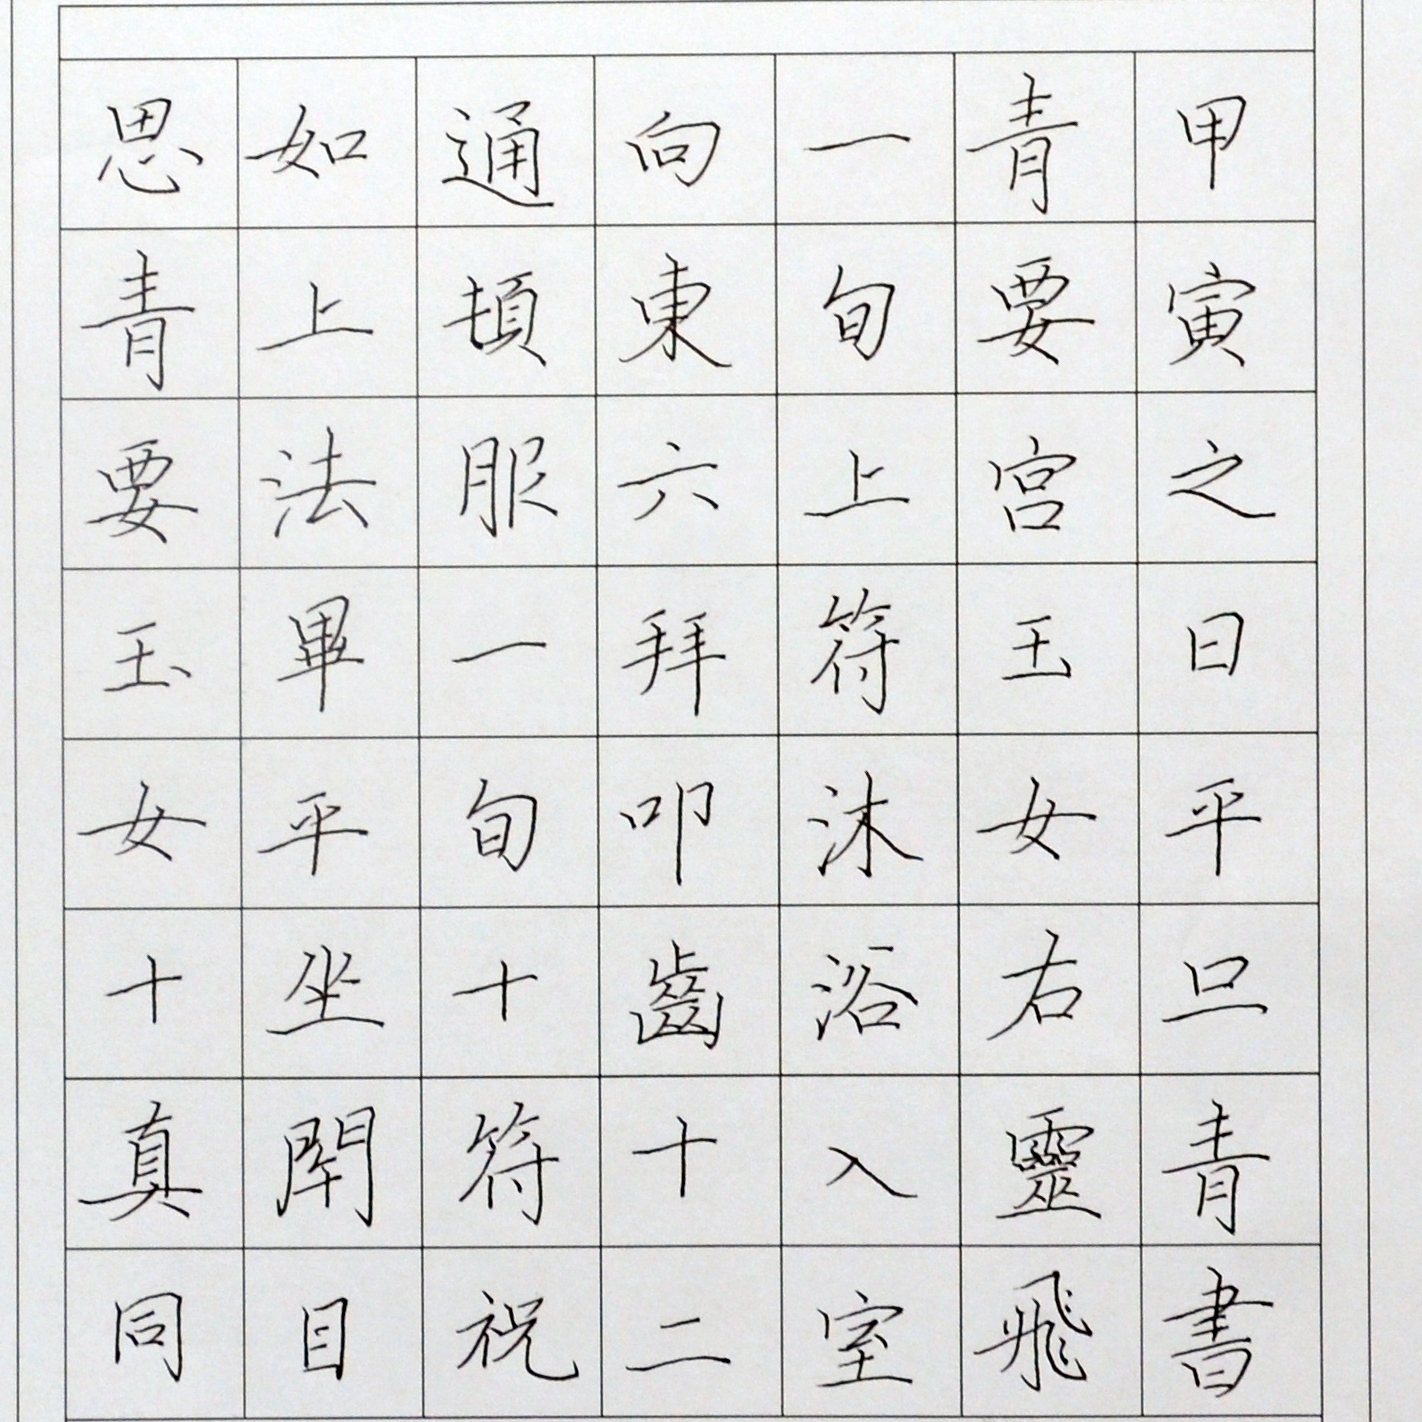 甲寅之日平旦青書
青要宮玉女右靈飛
一旬上符沐浴入室
向東六拜叩齒十二
通頓服一旬十符祝
如上法畢平坐閉目
思青要玉女十真同